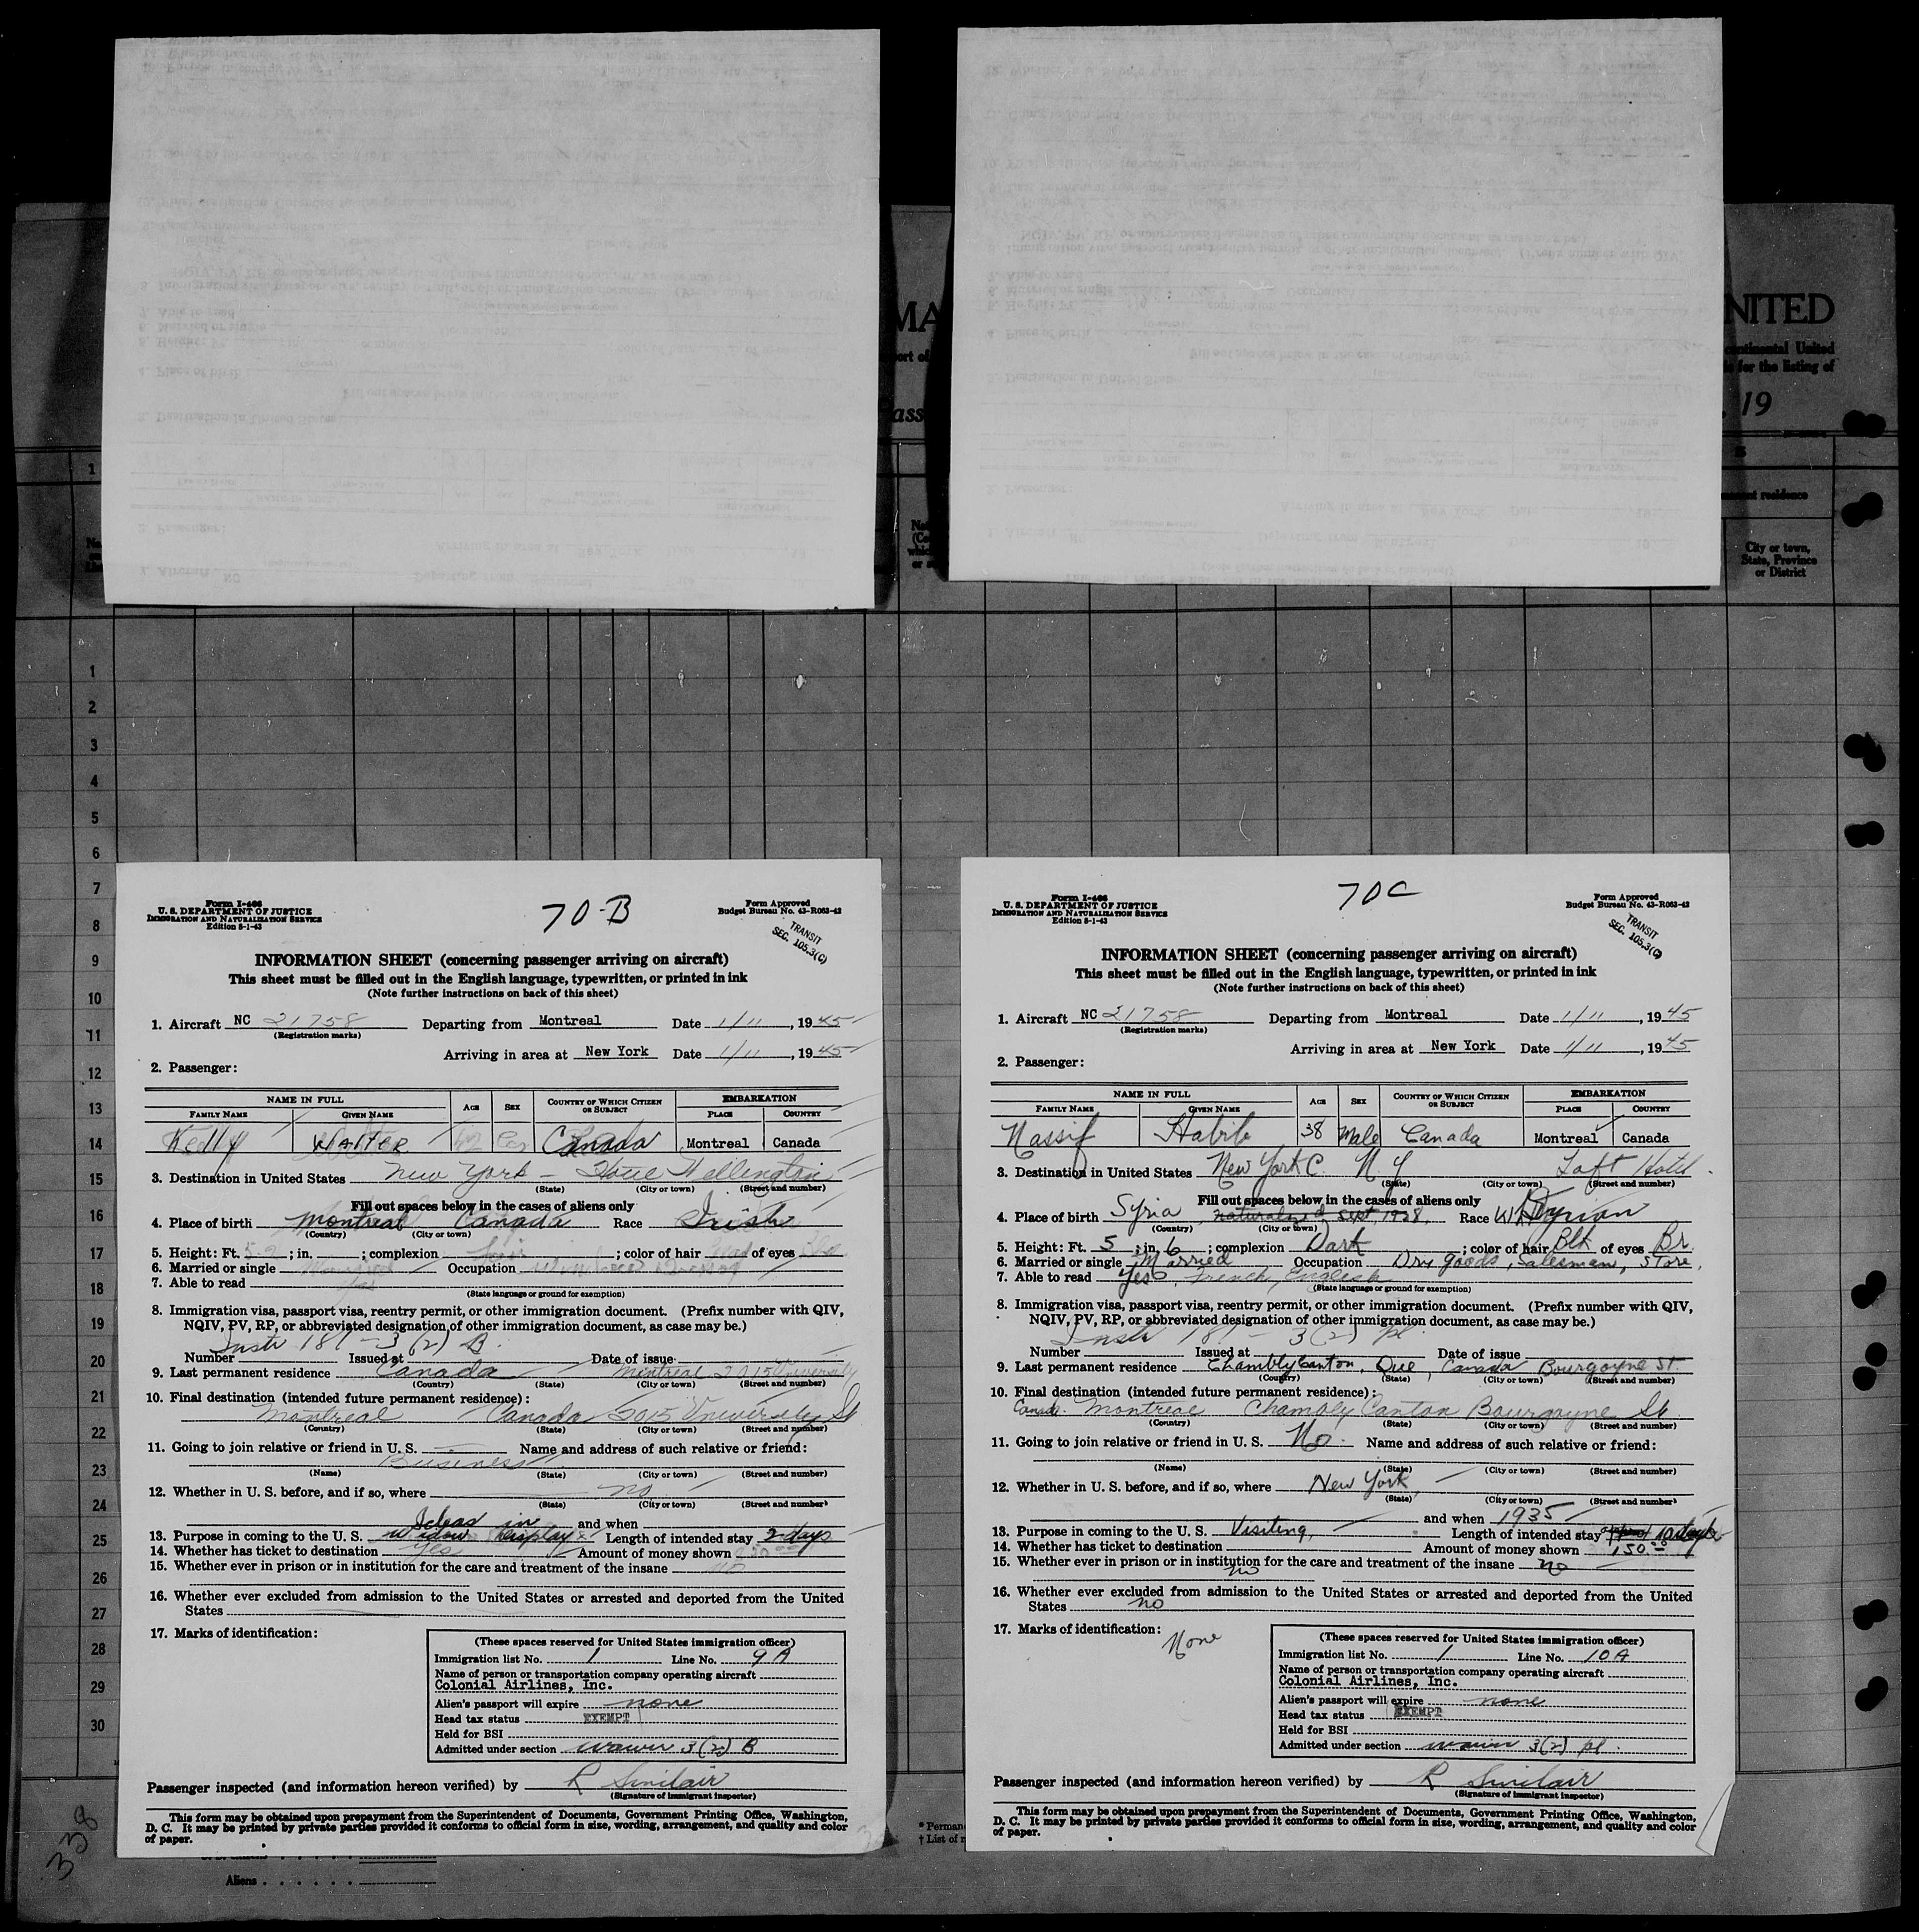 MA
NITED
port of
continental United
for the listing of
ass
, 19
1
B
permanent residence
City or town,
State, Province
or District
1
2
3
4
5
6
7
8
9
10
11
12
13
14
15
16
17
18
19
20
21
22
23
24
25
26
27
28
29
30
338
Aliens
* Perman
† List of
Form I-466
U. S. DEPARTMENT OF JUSTICE
IMMIGRATION AND NATURALIZATION SERVICE
Edition 5-1-43
70-B
Form Approved
Budget Bureau No. 43-R063-42
TRANSIT
SEC. 105.3(C)
INFORMATION SHEET (concerning passenger arriving on aircraft)
This sheet must be filled out in the English language, typewritten, or printed in ink
(Note further instructions on back of this sheet)
1. Aircraft NC 21758 Departing from Montreal Date 1/11, 1945
(Registration marks)
Arriving in area at New York Date 1/11, 1945
2. Passenger:
NAME IN FULL AGE SEX COUNTRY OF WHICH CITIZEN OR SUBJECT EMBARKATION
FAMILY NAME GIVEN NAME PLACE COUNTRY
Kelly WALTER Canada Montreal Canada
3. Destination in United States New York - Hotel Wellington
(State) (City or town) (Street and number)
Fill out spaces below in the cases of aliens only
4. Place of birth Montreal Canada Race Irish
(Country) (City or town)
5. Height: Ft. ; in. ; complexion Fair ; color of hair of eyes
6. Married or single Occupation
7. Able to read Yes
(State language or ground for exemption)
8. Immigration visa, passport visa, reentry permit, or other immigration document. (Prefix number with QIV,
NQIV, PV, RP, or abbreviated designation of other immigration document, as case may be.)
Instr 187-3(2) B.
Number Issued at Date of issue
9. Last permanent residence Canada Montreal 2015 University
(Country) (State) (City or town) (Street and number)
10. Final destination (intended future permanent residence):
Montreal Canada 2015 University St
(Country) (State) (City or town) (Street and number)
11. Going to join relative or friend in U. S. Name and address of such relative or friend:
Business
(Name) (State) (City or town) (Street and number)
12. Whether in U. S. before, and if so, where no
(State) (City or town) (Street and number)
and when
13. Purpose in coming to the U. S. Ideas in window Display Length of intended stay 2 days
14. Whether has ticket to destination Yes Amount of money shown
15. Whether ever in prison or in institution for the care and treatment of the insane no
16. Whether ever excluded from admission to the United States or arrested and deported from the United
States
17. Marks of identification:
(These spaces reserved for United States immigration officer)
Immigration list No. 1 Line No. 9A
Name of person or transportation company operating aircraft
Colonial Airlines, Inc.
Alien's passport will expire none
Head tax status EXEMPT
Held for BSI
Admitted under section waiver 3(2) B
Passenger inspected (and information hereon verified) by R Sinclair
(Signature of immigrant inspector)
This form may be obtained upon prepayment from the Superintendent of Documents, Government Printing Office, Washington,
D. C. It may be printed by private parties provided it conforms to official form in size, wording, arrangement, and quality and color
of paper.
Form I-466
U. S. DEPARTMENT OF JUSTICE
IMMIGRATION AND NATURALIZATION SERVICE
Edition 5-1-43
70C
Form Approved
Budget Bureau No. 43-R063-42
TRANSIT
SEC. 105.3(C)
INFORMATION SHEET (concerning passenger arriving on aircraft)
This sheet must be filled out in the English language, typewritten, or printed in ink
(Note further instructions on back of this sheet)
1. Aircraft NC 21758 Departing from Montreal Date 1/11, 1945
(Registration marks)
Arriving in area at New York Date 1/11, 1945
2. Passenger:
NAME IN FULL AGE SEX COUNTRY OF WHICH CITIZEN OR SUBJECT EMBARKATION
FAMILY NAME GIVEN NAME PLACE COUNTRY
Nassif Habib 38 Male Canada Montreal Canada
3. Destination in United States New York C. N.Y Taft Hotel
(State) (City or town) (Street and number)
Fill out spaces below in the cases of aliens only
4. Place of birth Syria, naturalized Sept 1928, Race Syrian
(Country) (City or town)
5. Height: Ft. 5; in. 6; complexion Dark; color of hair Blk of eyes Br.
6. Married or single Married Occupation Dry goods, Salesman, Store,
7. Able to read Yes, French, English
(State language or ground for exemption)
8. Immigration visa, passport visa, reentry permit, or other immigration document. (Prefix number with QIV,
NQIV, PV, RP, or abbreviated designation of other immigration document, as case may be.)
Instr 187-3(2) pl.
Number Issued at Date of issue
9. Last permanent residence Chambly Canton, Que, Canada Bourgoyne St.
(Country) (State) (City or town) (Street and number)
10. Final destination (intended future permanent residence):
Canada. Montreal Chambly Canton Bourgoyne St
(Country) (State) (City or town) (Street and number)
11. Going to join relative or friend in U. S. No. Name and address of such relative or friend:
(Name) (State) (City or town) (Street and number)
12. Whether in U. S. before, and if so, where New York,
(State) (City or town) (Street and number)
and when 1935
13. Purpose in coming to the U. S. Visiting, Length of intended stay 10 days
14. Whether has ticket to destination Amount of money shown 150.00
15. Whether ever in prison or in institution for the care and treatment of the insane no
no
16. Whether ever excluded from admission to the United States or arrested and deported from the United
States no
17. Marks of identification: None
(These spaces reserved for United States immigration officer)
Immigration list No. 1 Line No. 10A
Name of person or transportation company operating aircraft
Colonial Airlines, Inc.
Alien's passport will expire none
Head tax status EXEMPT
Held for BSI
Admitted under section waiver 3(2) pl.
Passenger inspected (and information hereon verified) by R Sinclair
(Signature of immigrant inspector)
This form may be obtained upon prepayment from the Superintendent of Documents, Government Printing Office, Washington,
D. C. It may be printed by private parties provided it conforms to official form in size, wording, arrangement, and quality and color
of paper.